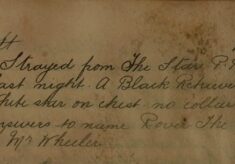 Strayed from The Star P.
last night. A Black Retriever
white star on chest no collar
answers to name Rover The
Mr Wheeler